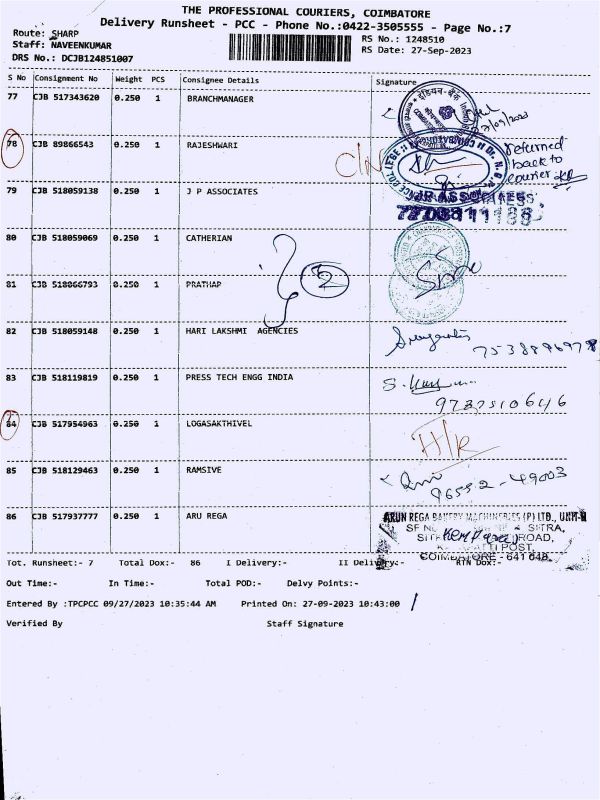 THE PROFESSIONAL COURIERS, COIMBATORE
Delivery Runsheet - PCC - Phone No.:0422-3505555 - Page No.:7
Route: SHARP
RS No.: 1248510
Staff: NAVEENKUMAR
RS Date: 27-Sep-2023
DRS No.: DCJB124851007
S No Consignment No Weight PCS Consignee Details Signature
77 CJB 517343620 0.250 1 BRANCHMANAGER
78 CJB 89866543 0.250 1 RAJESHWARI
returned
back to
courier
79 CJB 518059138 0.250 1 J P ASSOCIATES
80 CJB 518059069 0.250 1 CATHERIAN
5
81 CJB 518066793 0.250 1 PRATHAP
82 CJB 518059148 0.250 1 HARI LAKSHMI AGENCIES
83 CJB 518119819 0.250 1 PRESS TECH ENGG INDIA
84 CJB 517954963 0.250 1 LOGASAKTHIVEL
85 CJB 518129463 0.250 1 RAMSIVE
96552-49003
86 CJB 517937777 0.250 1 ARU REGA
ARUN REGA BAKERY MACHINERIES (P) LTD.,
ROAD,
POST,
COIMBATORE - 641 048.
Tot. Runsheet:- 7 Total Dox:- 86 I Delivery:- II Delivery:- RTN Dox:-
Out Time:- In Time:- Total POD:- Delvy Points:-
Entered By :TPCPCC 09/27/2023 10:35:44 AM Printed On: 27-09-2023 10:43:00
Verified By Staff Signature